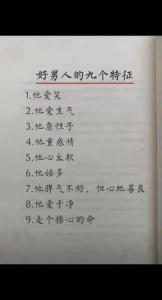 好男人的九个特征
1.他爱笑
2.他爱生气
3.他急性子
4.他重感情
5.他心太软
6.他话多
7.他脾气不好，但心地善良
8.他爱干净
9.是个操心的命